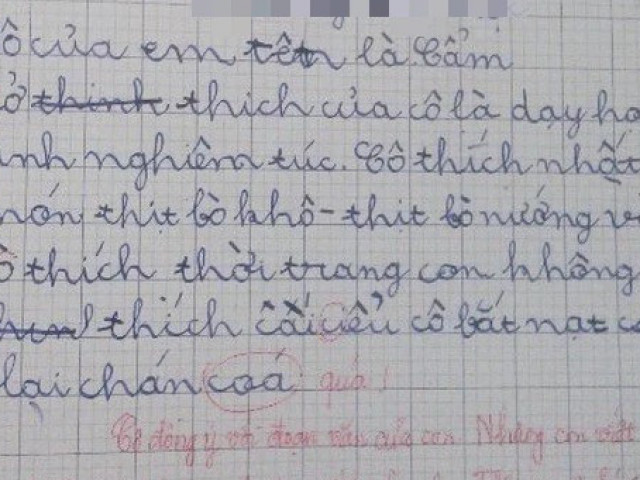 ô của em tên là Cẩm
ở thinh thich của cô là dạy ho
inh nghiêm túc. Cô thích nhất
món thịt bò khô - thịt bò nướng v
ô thích thời trang con không
thích cái kiểu cô bắt nạt c
lại chán coá quá!
Cô đồng ý với đoạn văn của con Nhưng con viết